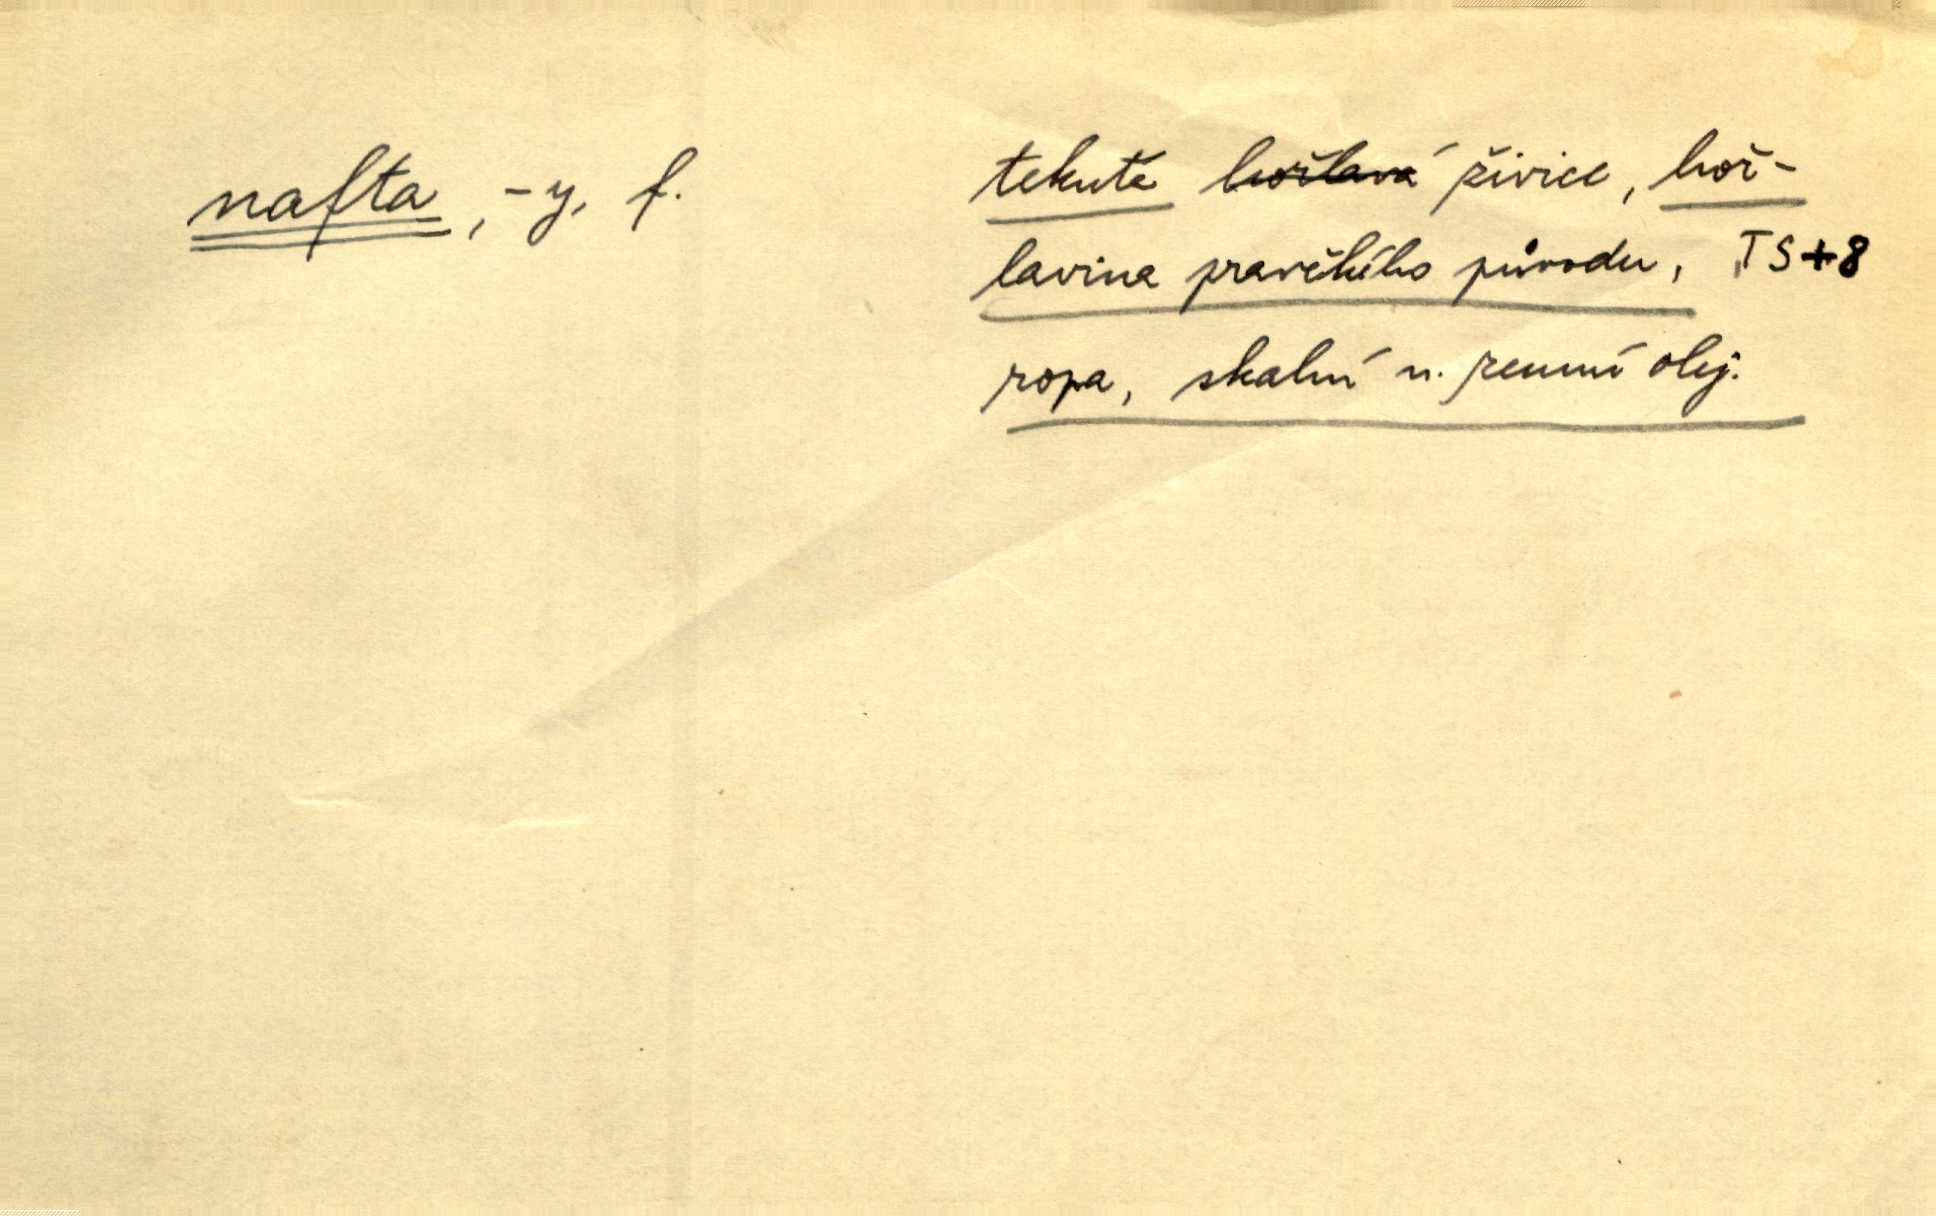 nafta, -y, f.
tekuté hořlavá živice, hoř-
lavina pravěkého původu, TS+8
ropa, skalní n. zemní olej.